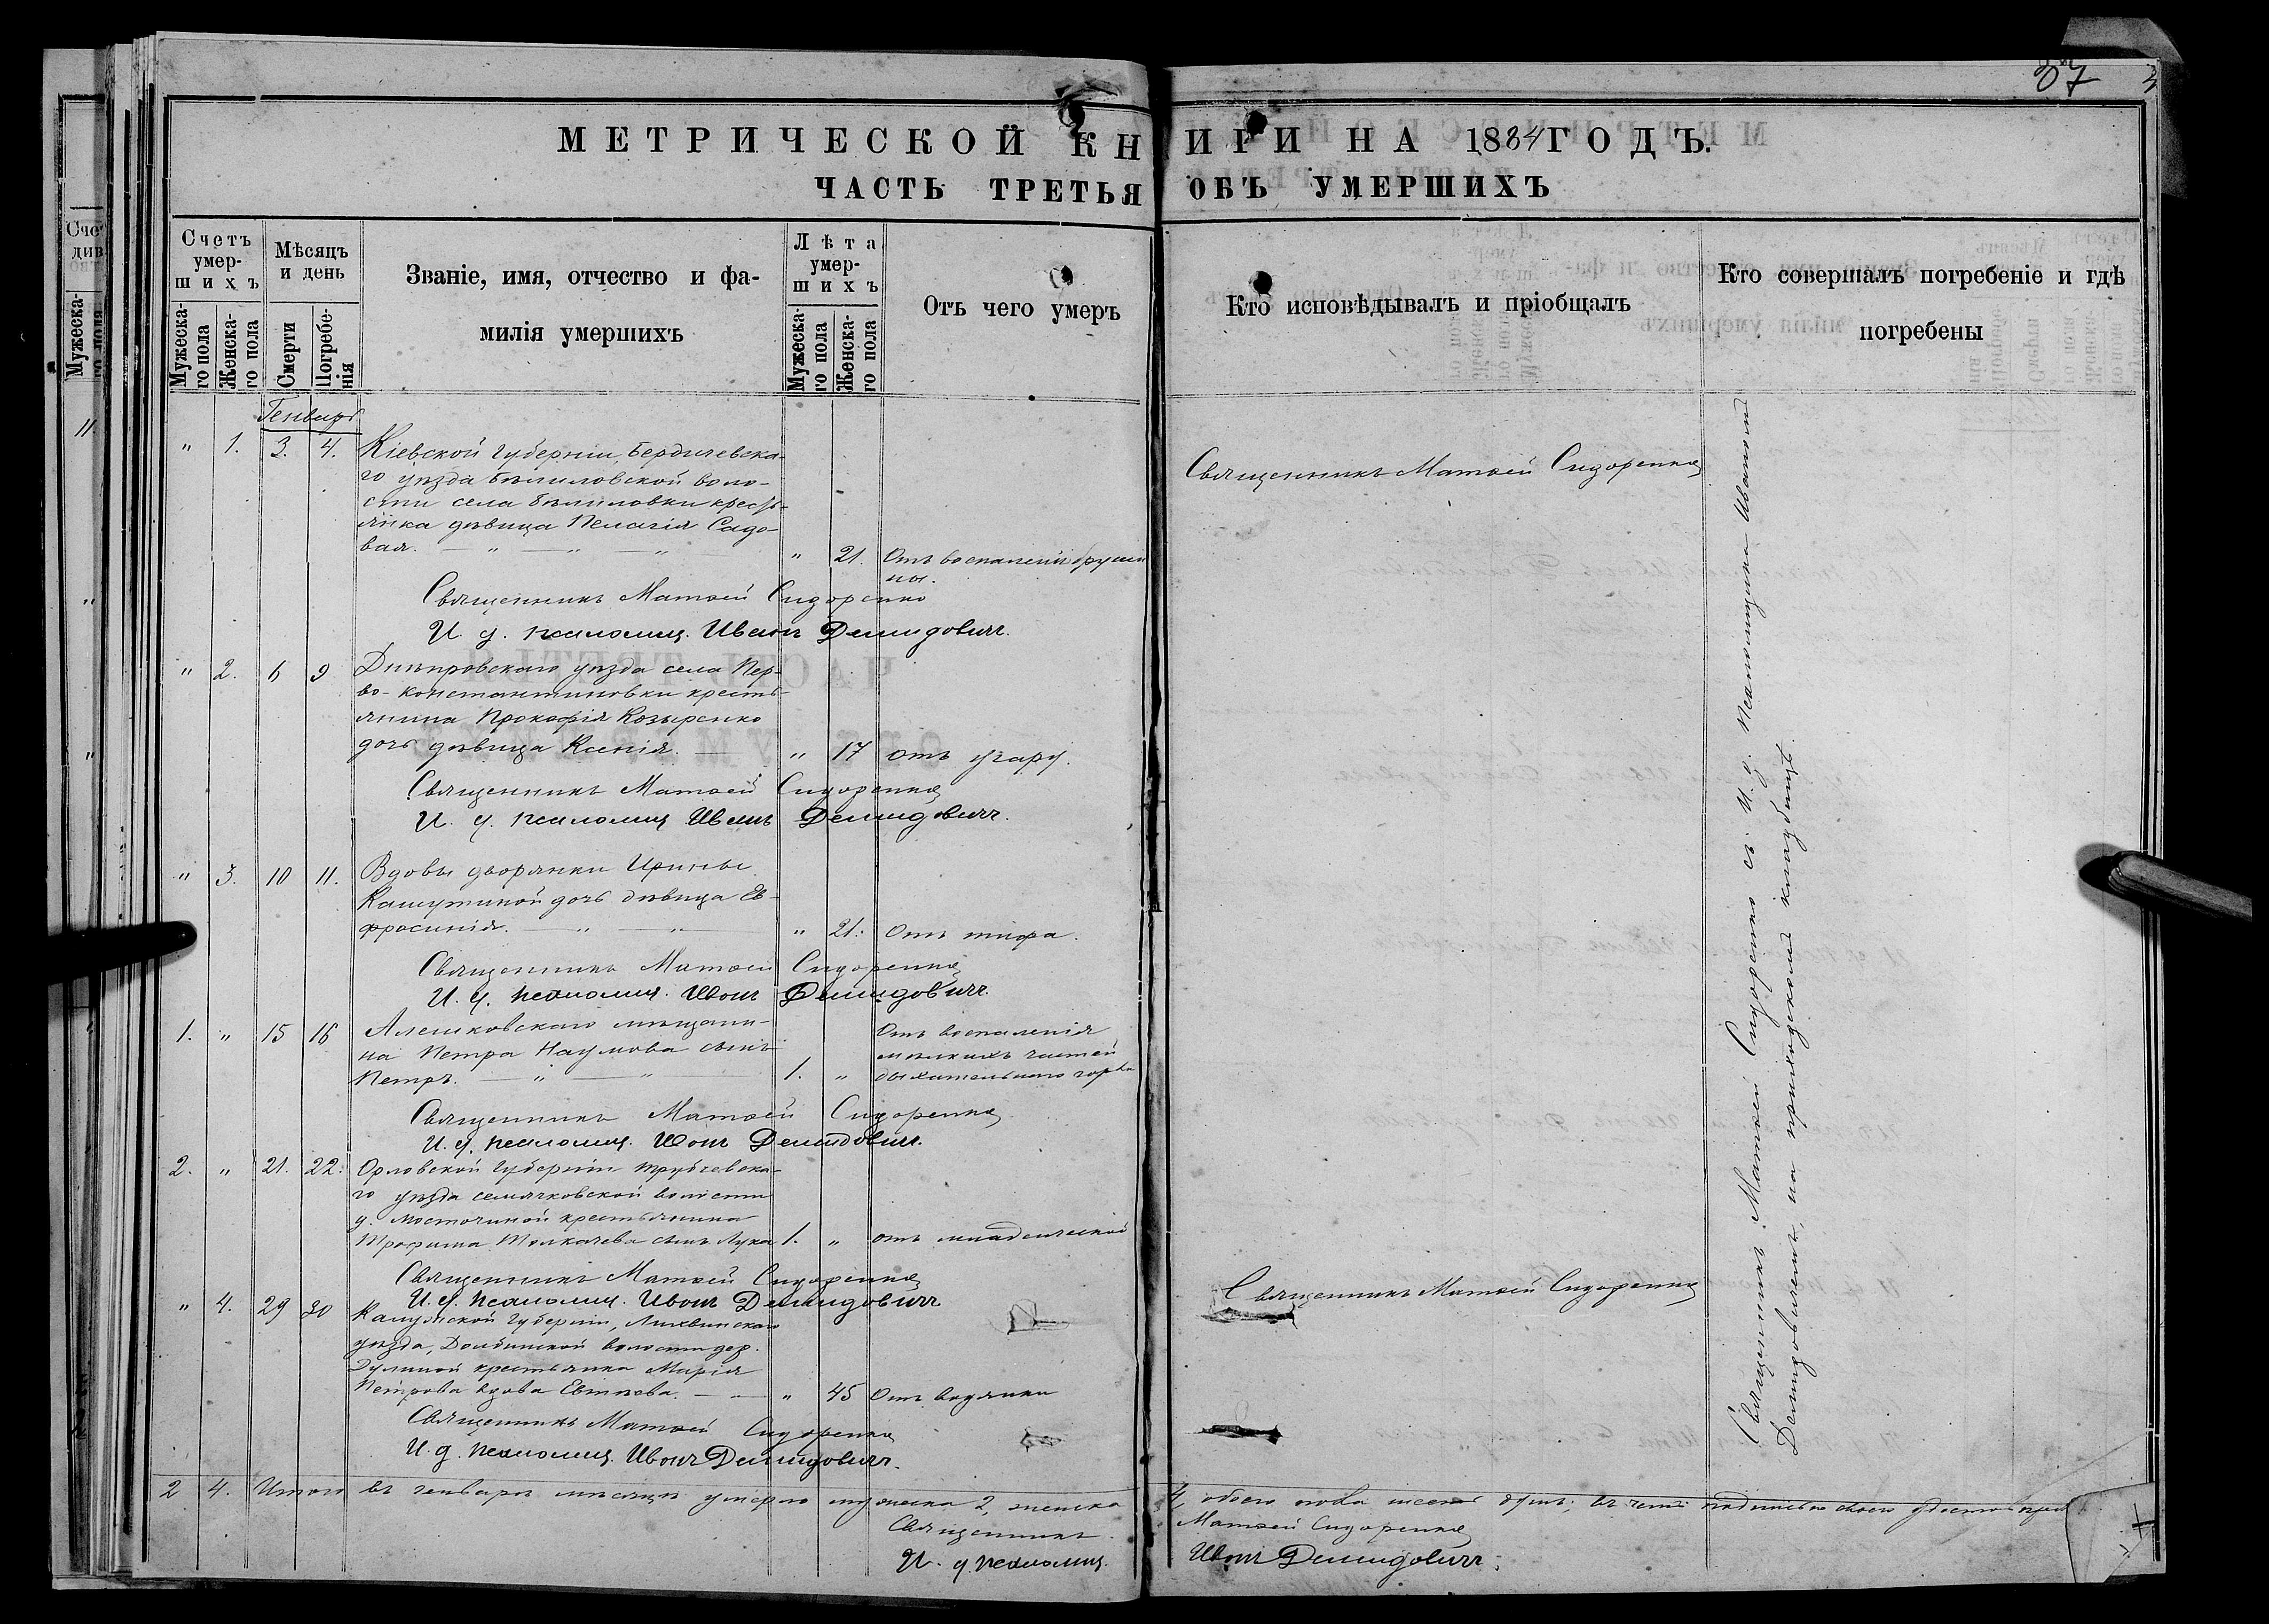 37
МЕТРИЧЕСКОЙ КНИГИ НА 1884 ГОДЪ.
ЧАСТЬ ТРЕТЬЯ ОБЪ УМЕРШИХЪ
Счетъ умер-шихъ
Мѣсяцъ и день
Званіе, имя, отчество и фа-
милія умершихъ
Лѣта умер-шихъ
Отъ чего умеръ
Кто исповѣдывалъ и пріобщалъ
Кто совершалъ погребеніе и гдѣ
погребены
Мужеска-го пола
Женска-го пола
Смерти
Погребе-нія
Мужеска-го пола
Женска-го пола
Генварь
" 1. 3. 4. Кіевской губерніи, Бердичевска-
го уѣзда Бѣлиловской воло-
сти села Бѣлиловки кресть-
янка дѣвица Пелагія Садо-
вая. — " — " — " " 21. Отъ воспаленія брюши
ны.
Священникъ Матѳей Сидоренко
Священникъ Матѳей Сидоренко
И. д. псаломщ. Иванъ Демидовичъ.
" 2. 6 9 Днѣпровскаго уѣзда села Пер-
во-константиновки кресть-
янина Прокофія Козыренко
дочь дѣвица Ксенія. — " 17 отъ угару.
Священникъ Матѳей Сидоренко
И. д. псаломщ Иванъ Демидовичъ.
" 3. 10 11. Вдовы дворянки Ирины
дочь дѣвица Ев-
фросинія. — " — " — " 21. Отъ тифа.
Священникъ Матѳей Сидоренко
И. д. псаломщ. Иванъ Демидовичъ.
1. " 15 16 Алешковскаго мѣщани-
на Петра Наумова сынъ
Петръ. — " — " 1. " Отъ воспаленія
мелкихъ частей
дыхательнаго горла
Священникъ Матѳей Сидоренко
И. д. псаломщ. Иванъ Демидовичъ.
2. " 21. 22. Орловской губерніи Трубчевска-
го уѣзда Семячковской волости
д. крестьянина
Трофима Толкачева сынъ Лука 1. " отъ младенческой
Священникъ Матѳей Сидоренко
И. д. псаломщ. Иванъ Демидовичъ
" 4. 29 30 Калужской губерніи, Лихвинскаго
уѣзда, волости дер.
крестьянка Марія
Петрова вдова — " 45 Отъ водянки
Священникъ Матѳей Сидоренко
Священникъ Матѳей Сидоренко
И. д. псаломщ. Иванъ Демидовичъ.
Священникъ Матѳей Сидоренко съ и. д. псаломщика Иваномъ
Демидовичемъ, на приходскомъ кладбищѣ.
2 4. Итого въ генварѣ мѣсяцѣ умерло мужеска 2, женска 4, обоего пола шесть душъ; въ чемъ подписью своею
Священникъ Матѳей Сидоренко
И. д. псаломщ. Иванъ Демидовичъ.